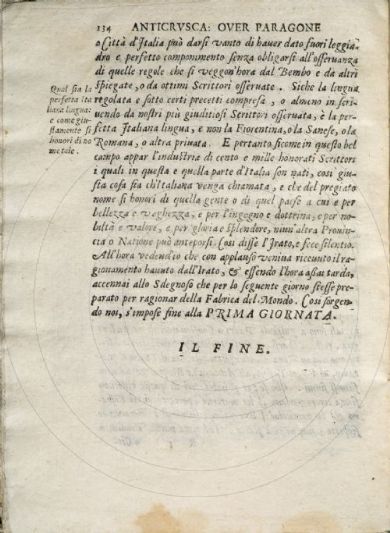 134 ANTICRVSCA: OVER PARAGONE
o Città d'Italia può darsi vanto di hauer dato fuori leggia-
dro e perfetto componimento senza obligarsi all'osseruanza
di quelle regole che si veggon'hora dal Bembo e da altri
spiegate, o da ottimi Scrittori osseruate. Siche la lingua
regolata e sotto certi precetti compresa, o almeno in scri-
uendo da nostri più giuditiosi Scrittori osseruata, è la per-
fetta Italiana lingua, e non la Fiorentina, o la Sanese, o la
Romana, o altra priuata. E pertanto sicome in questo bel
campo appar l'industria di cento e mille honorati Scrittori
i quali in questa e quella parte d'Italia son nati, cosi giu-
sta cosa sia ch'Italiana venga chiamata, e che del pregiato
nome si honori di quella gente o di quel paese a cui e per
bellezza e vaghezza, e per l'ingegno e dottrina, e per no-
biltà e valore, e per gloria e splendore, niun'altra Prouin-
cia o Natione può anteporsi. Cosi disse l'Irato, e fece silentio.
All'hora vedendio che con applauso veniua riceuuto il ra-
gionamento hauuto dall'Irato, & essendo l'hora assai tarda,
accennai allo Sdegnoso che per lo seguente giorno stesse pre-
parato per ragionar della Fabrica del Mondo. Cosi sorgen-
do noi, s'impose fine alla PRIMA GIORNATA.
Qual sia la
perfetta ita
liana lingua:
e come giu-
stamente si
honori di no
me tale.
IL FINE.